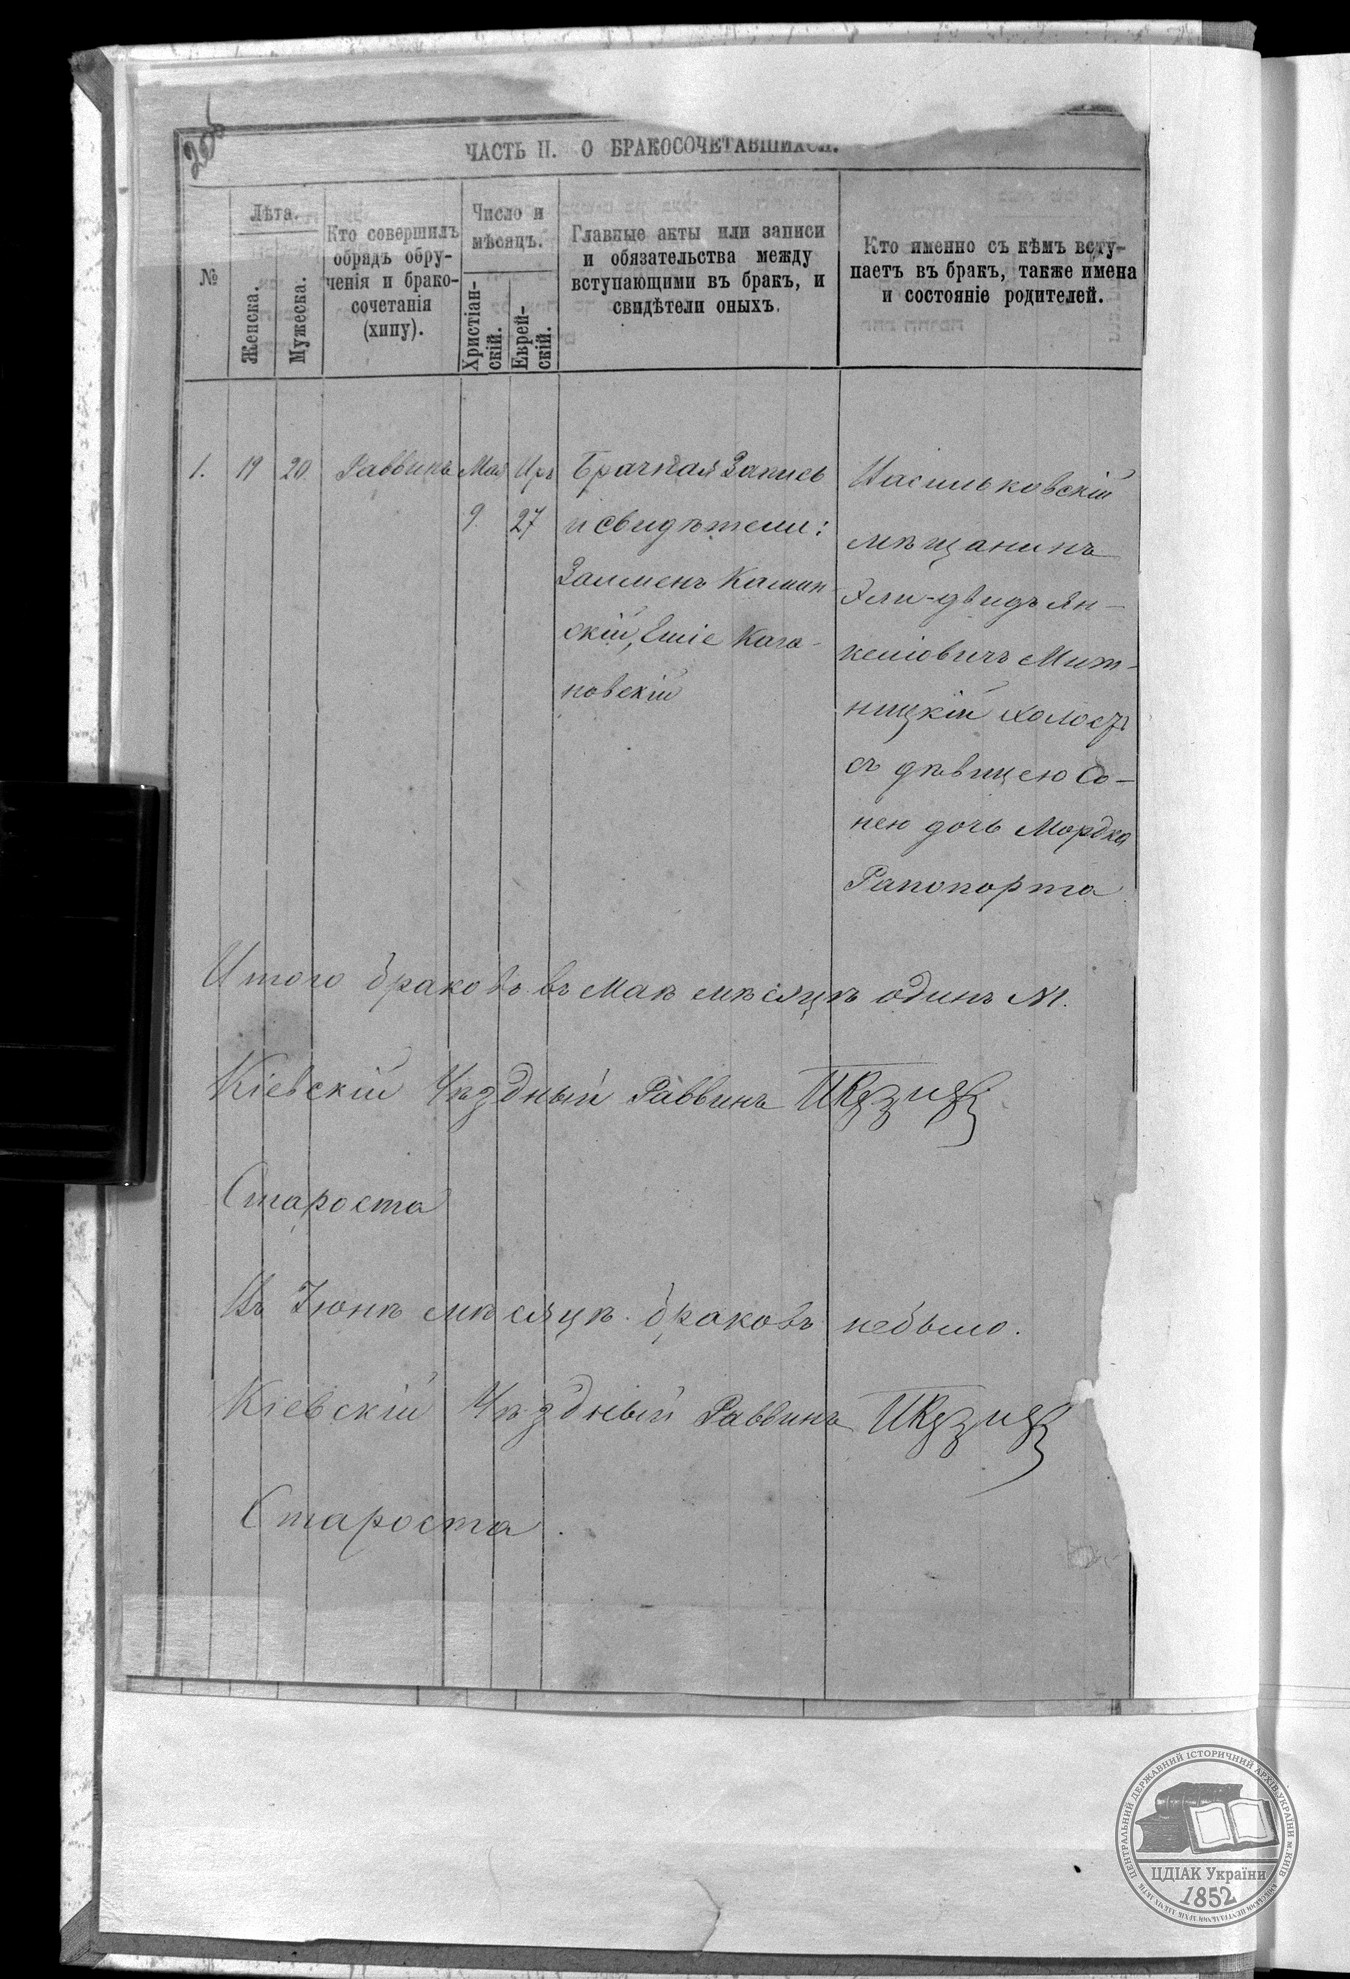 ЧАСТЬ II. О БРАКОСОЧЕТАВШИХСЯ.
№
Лѣта.
Женска.
Мужеска.
Кто совершилъ
обрядъ обру-
ченія и брако-
сочетанія
(хипу).
Число и
мѣсяцъ.
Христіан-
скій.
Еврей-
скій.
Главные акты или записи
и обязательства между
вступающими въ бракъ, и
свидѣтели оныхъ.
Кто именно съ кѣмъ всту-
паетъ въ бракъ, также имена
и состояніе родителей.
1.
19
20
Раввинъ
Мая
9.
Иръ
27
Брачная Запись
и свидѣтели:
Залменъ Камин
скій, Ешіе Кага-
новскій
Васильковскій
мѣщанинъ
Эли-двидъ Ян-
келіовичъ Мит-
ницкій холостъ
съ дѣвицею Со-
нею дочь Мордка
Рапопорта
Итого браковъ въ маѣ мѣсяцѣ одинъ №1.
Кіевскій Уѣздный Раввинъ
Староста
Въ Іюнѣ мѣсяцѣ браковъ небыло.
Кіевскій Уѣздный Раввинъ
Староста.
ЦЕНТРАЛЬНИЙ ДЕРЖАВНИЙ ІСТОРИЧНИЙ АРХІВ УКРАЇНИ м. КИЇВ
ЦДІАК України
1852